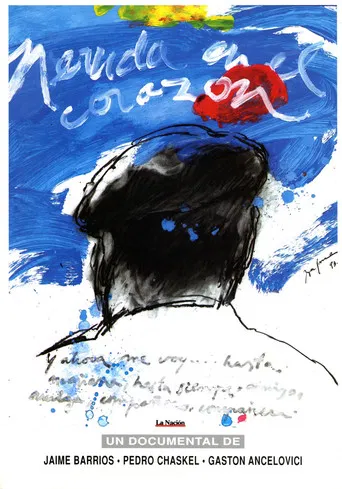 Neruda en el
corazón
Y ahora me voy.... hasta
mañana, hasta siempre, amigos,
amigas, compañeros, compañera.
La Nación
UN DOCUMENTAL DE
JAIME BARRIOS · PEDRO CHASKEL · GASTON ANCELOVICI